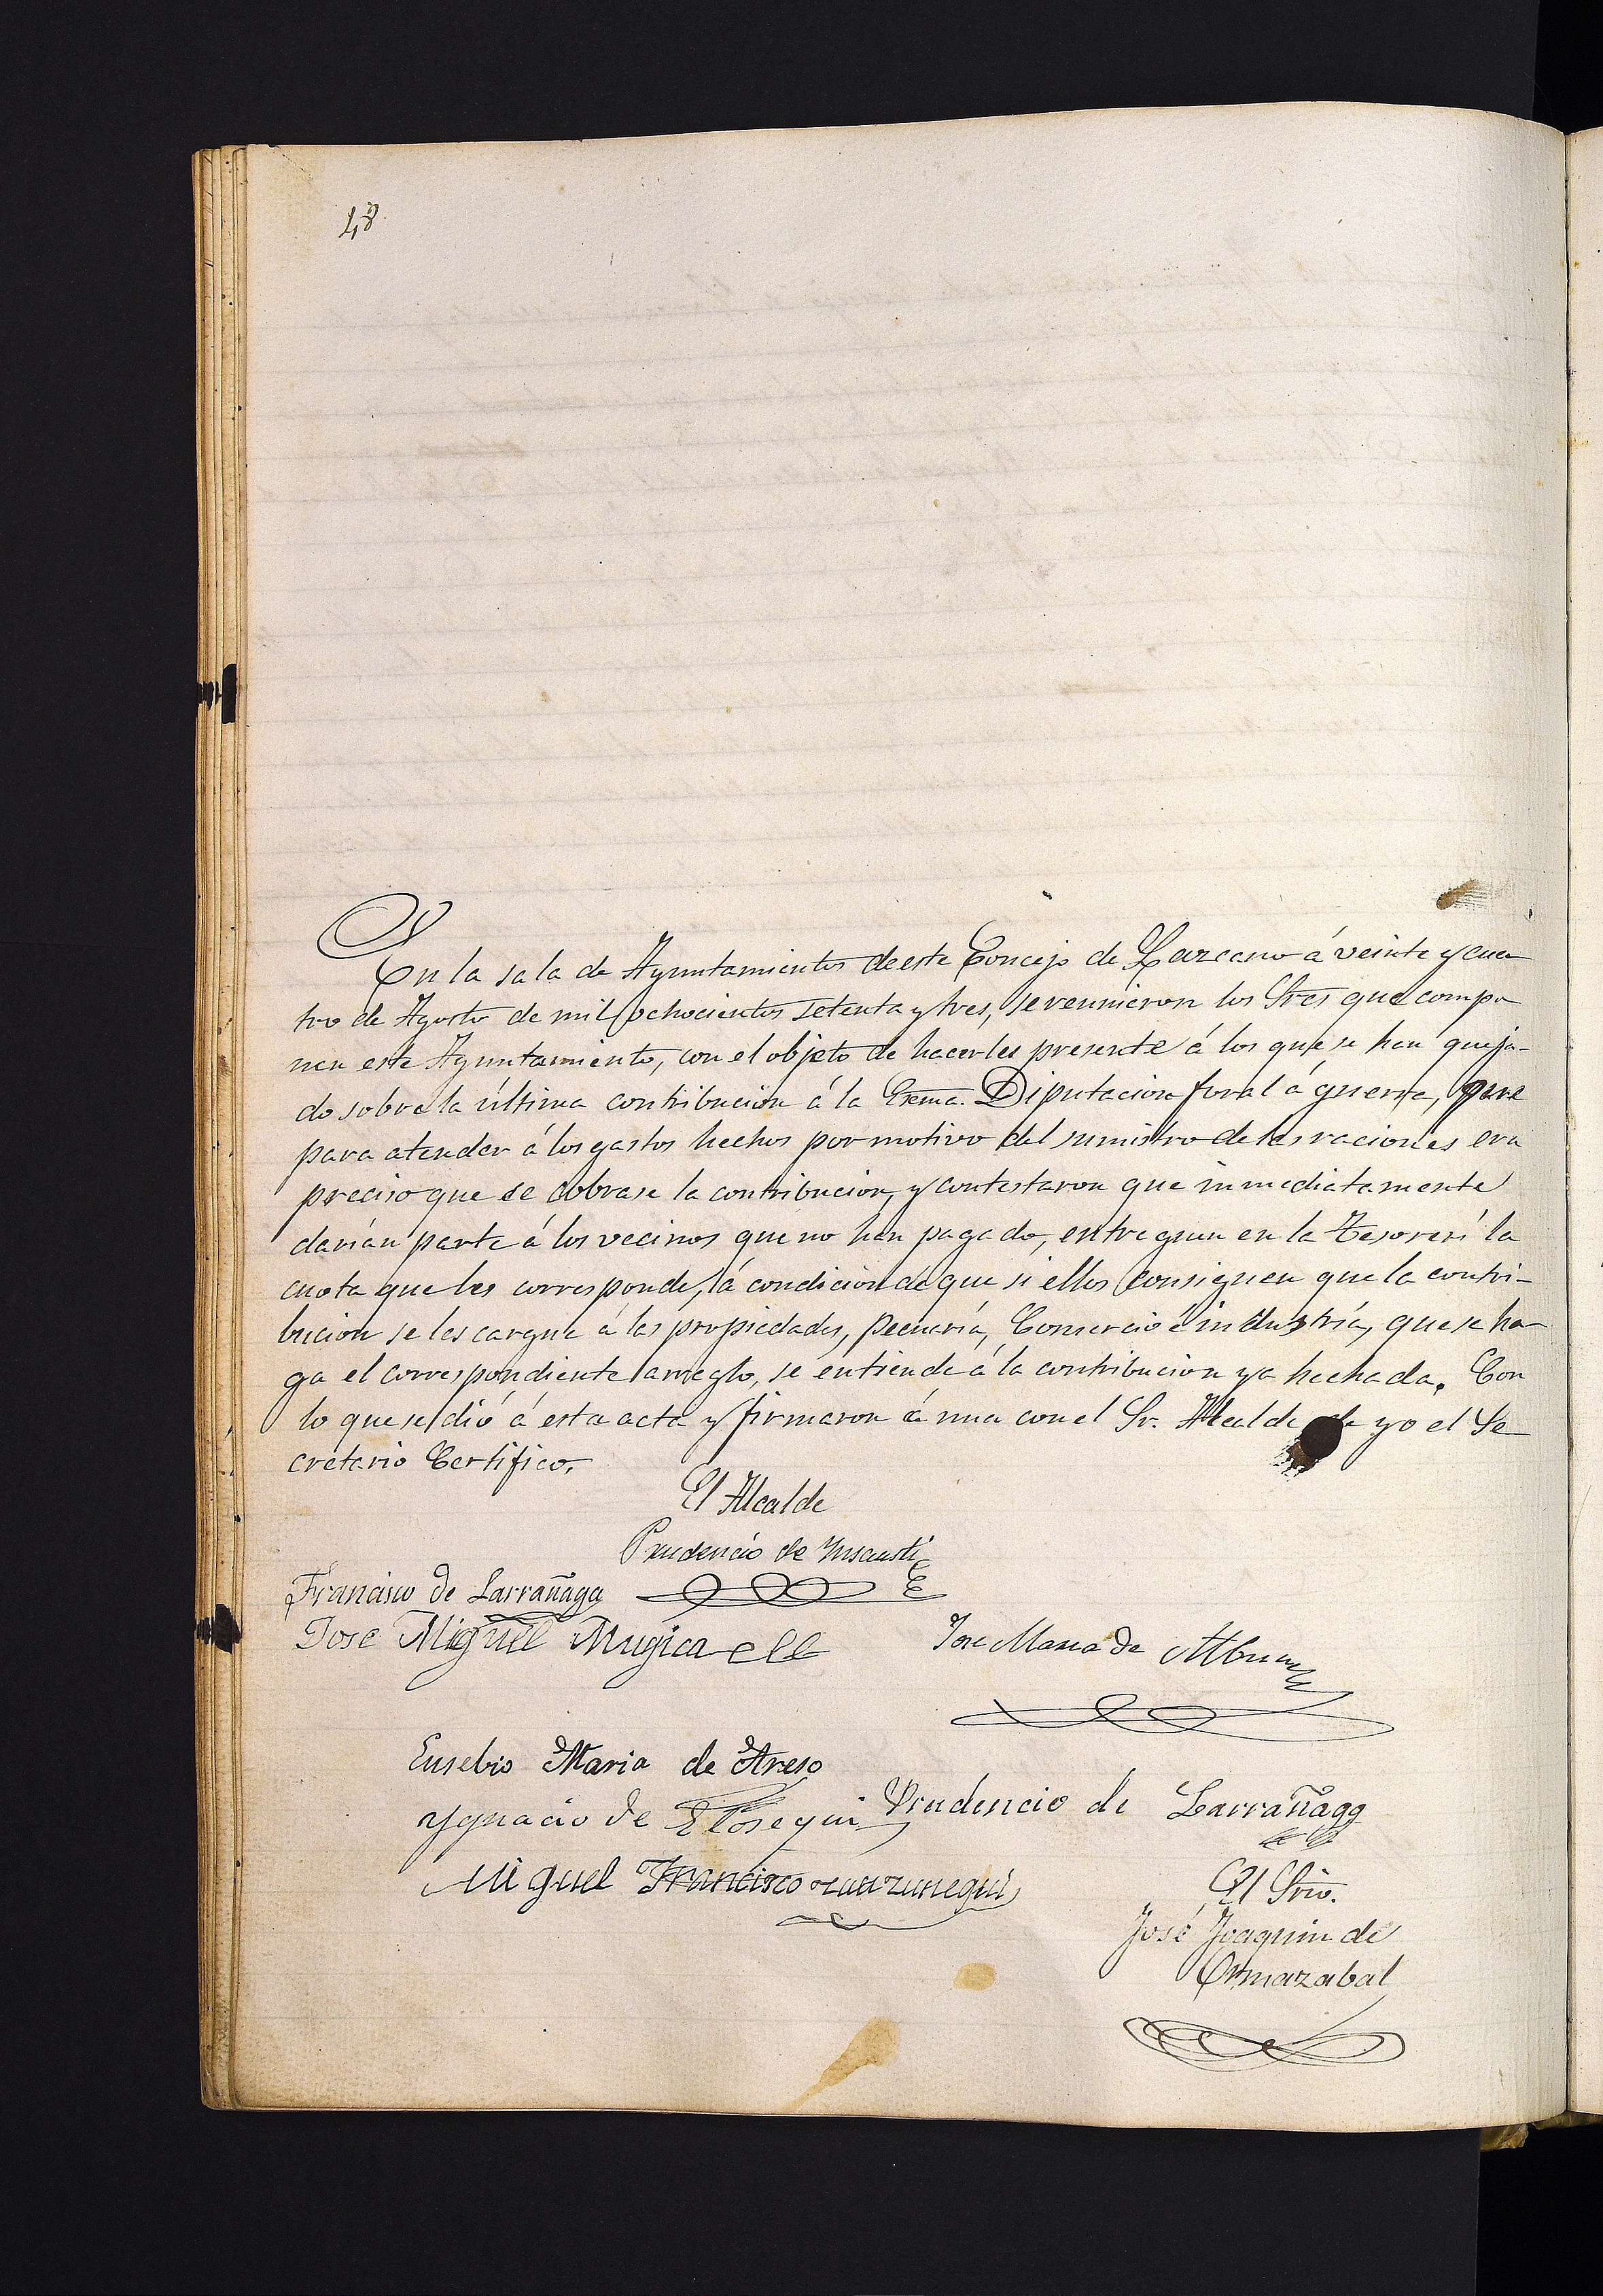 48
En la sala de Ayuntamientos de este Concejo de Lazcano á veinte y cua
tro de Agosto de mil ochocientos setenta y tres, se reunieron los Sres que compo
nen este Ayuntamiento, con el objeto de hacerles presente á los que se han queja-
do sobre la última contribucion á la Exma. Diputacion foral á guerra, que
para atender á los gastos hechos por motivo del sumistro de las raciones era
preciso que se cobrase la contribucion, y contestaron que inmediatamente
darían parte á los vecinos que no han pagado, entreguen en la Tesorerí la
cuota que les corresponde, á condicion de que si ellos consiguen que la contri-
bucion se les cargue á las propiedades, pecuaría, Comercio é industría, que se ha-
ga el correspondiente arreglo, se entiende á la contribucion ya hechada. Con
lo que se dió á esta acta y firmaron á una con el Sr. Alcalde de yo el Se
cretario Certifico.
El Alcalde
Prudencio de Ynsausti
Francisco de Larrañaga
Jose Miguel Mugica
Jose Maria de
Eusebio Maria de Areso
Ygnacio de Elosegui
Prudencio de Larrañaga
Miguel Francisco
El Srio.
José Joaquin de
Ormazabal